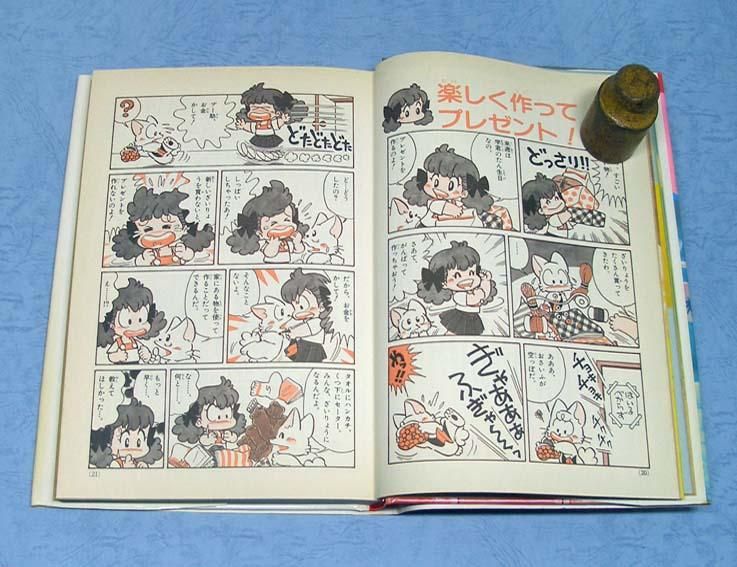 楽しく作って
プレゼント！
どっさり!!
すごい
来週は
学君のたん生日
なの。
プレゼントを
作るのよ！
ざいりょうを
たくさん買って
きたわ。
さあて、
がんばって
作っちゃおう！
はいる
べからず
チョキチョキ
あああ、
おさいふが
空っぽだ。
ぎゃああああ
ふぎゃ〜ん
わっ!!
(20)
どたどたどた
プー助、
お金
かして！
？
ど…どう
したの？
いっぱい
しちゃったあ！
新しいざいりょ
うを買わないと、
プレゼントを
作れないのよ！
だから、お金を
かして！
そんなこと
ないよ。
家にある物を使って
作ることだって
できるんだ。
え…!?
タオルにハンカチ、
くつ下にセーター、
みんな、ざいりょうに
なるんだよ。
な、
何と…。
もっと
早く…、
教えて
ほしかった…。
(21)